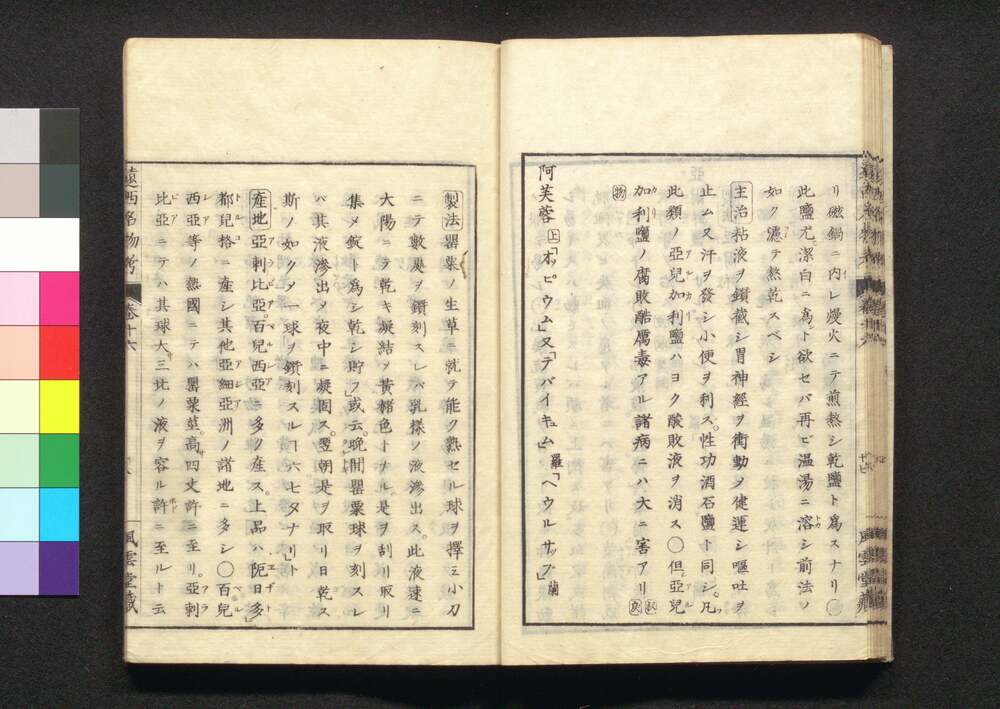 リ磁鍋ニ内レ慢火ニテ煎熬シ乾鹽ト爲スナリ〇
此鹽尤潔白ニ爲ト欲セバ再ビ温湯ニ溶シ前法ノ
如ク濾テ熬乾スベシ
主治 粘液ヲ鑽截シ胃神經ヲ衝動〆健運シ嘔吐ヲ
止ム又汗ヲ發シ小便ヲ利ス。性功消石鹽ト同シ。凡
此類ノ亞兒加利鹽ハヨク酸敗液ヲ消ス〇但亞兒
加利鹽ノ腐敗酷厲毒アル諸病ニハ大ニ害アリ
物
阿芙蓉 上 「オッピウム」又「テバイキュム」羅「ヘウルサップ」蘭
製法 罌粟ノ生草ニ就ヲ能ク熟セル球ヲ擇ミ小刀
ニテ數處ヲ鑽刻スレバ乳樣ノ液滲出ス。此液速ニ
大陽ニテ乾キ凝結ソ黄赭色トナル是ヲ刮リ取リ
集メ錠ト爲シ乾シ貯フ」或云。晩間罌粟球ヲ刻スレ
バ其液滲出メ夜中ニ凝固ス。翌朝是ヲ取リ日乾ス
斯ノ如ク〆一球ヲ鑽刻スルヿ六七タナリ」ト
産地 亞剌比亞。百兒西亞ニ多ク産ス。上品ハ阨日多
都兒格ニ産シ其他亞細亞洲ノ諸地ニ多シ〇百兒
西亞等ノ熱國ニテハ罌粟莖。高四丈許ニ至リ。亞剌
比亞ニテハ其球大サ三比ノ液ヲ容ル許ニ至ルト云
遠西名物考
卷十六
風雲堂藏